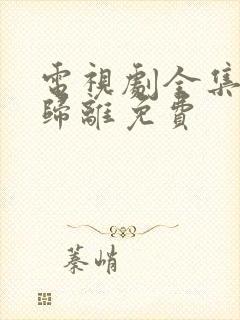 電視劇全集
歸離免費
蓁峭